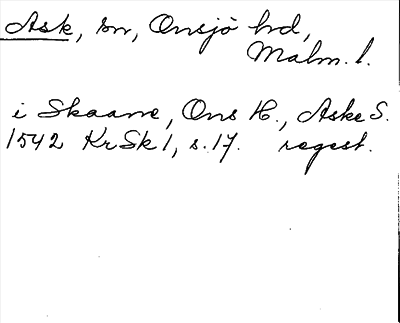 Ask, sn, Onsjö hd,
Malm. l.
i Skaane, Ons H., Aske S.
1542 KrSk 1, s. 17. regest.